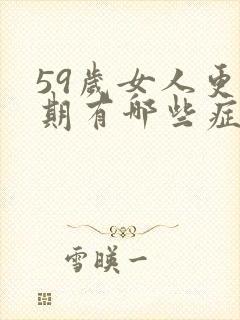 59歲女人更
期有哪些症
雪暎一